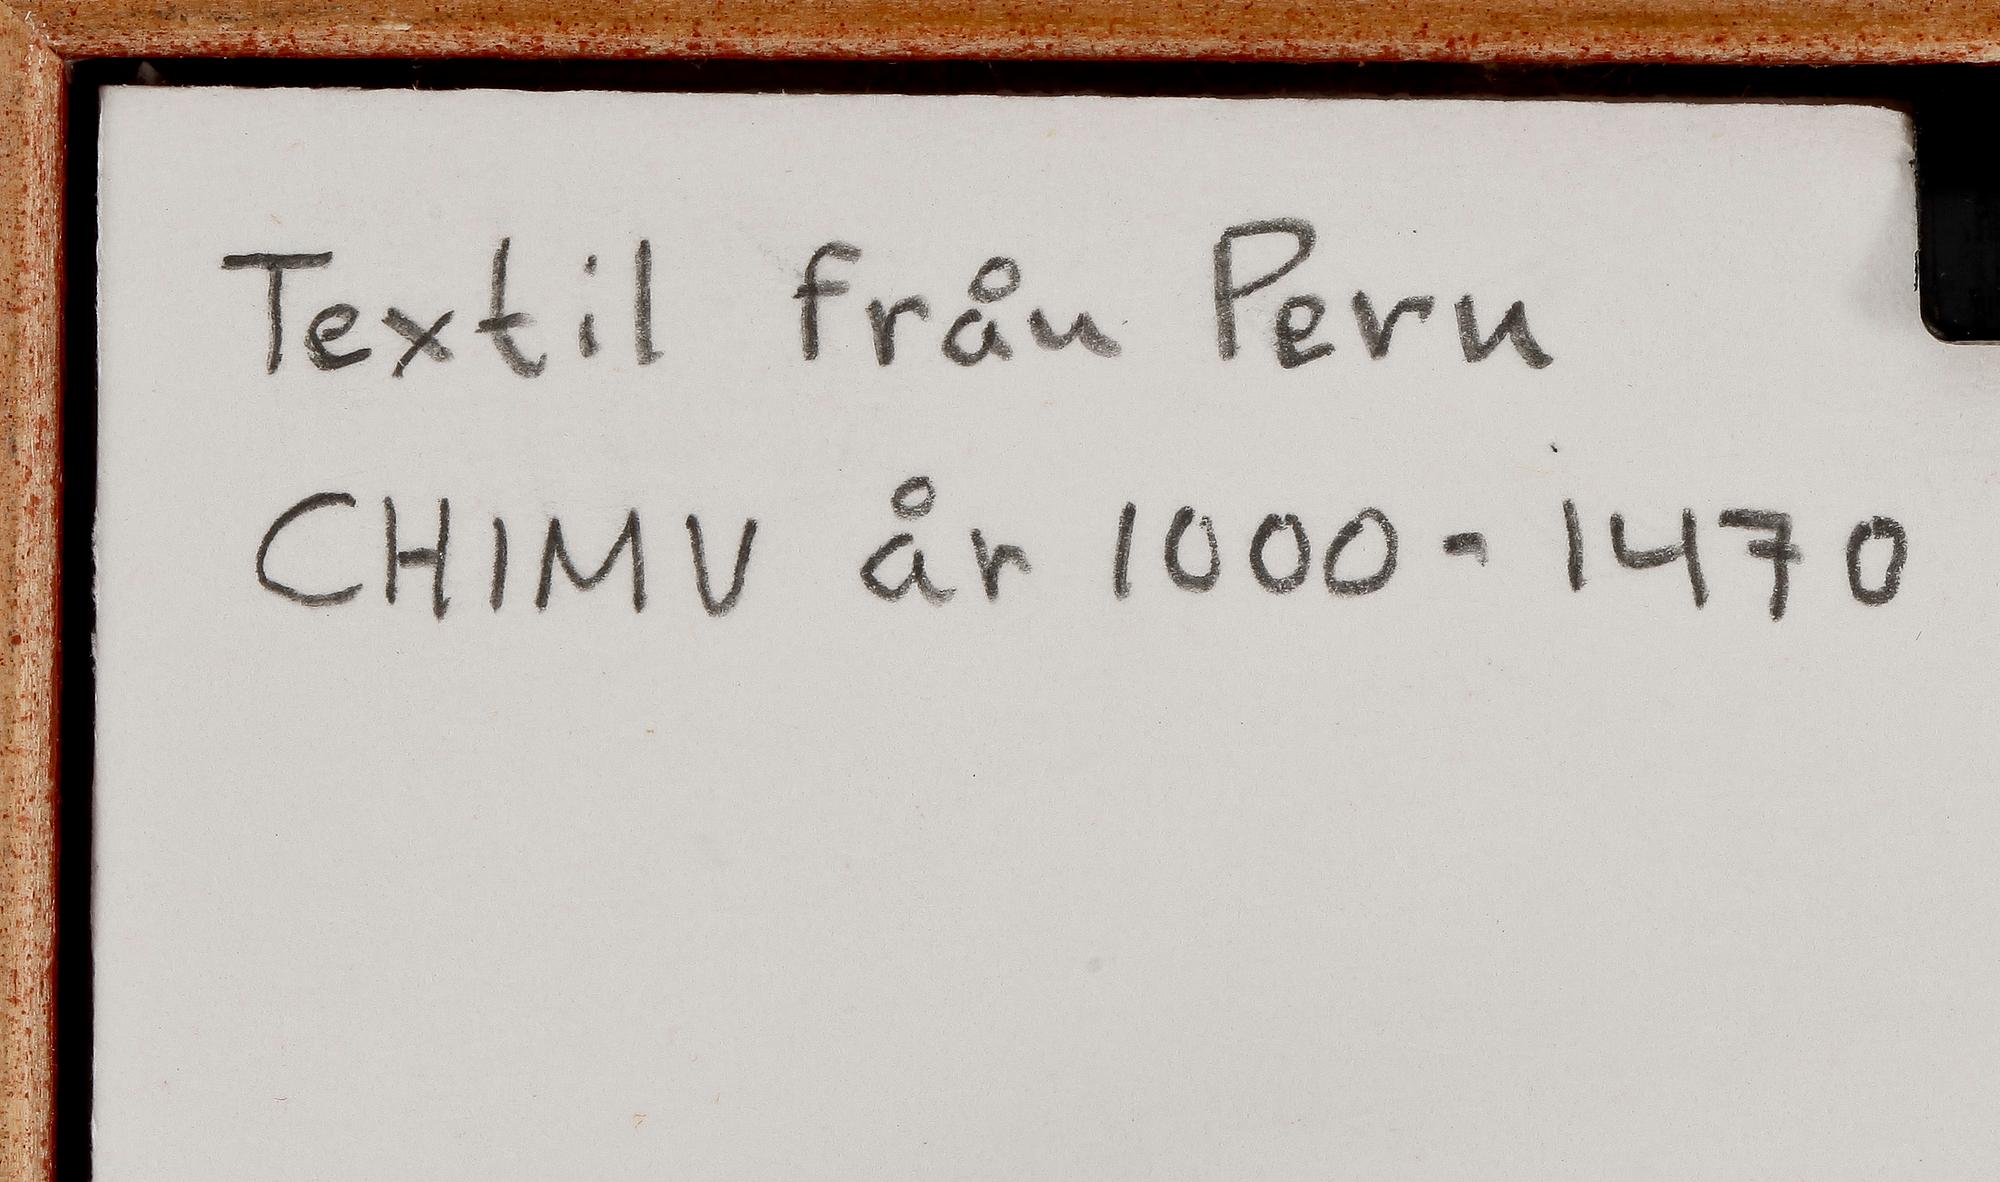 Textil från Peru
CHIMU år 1000-1470